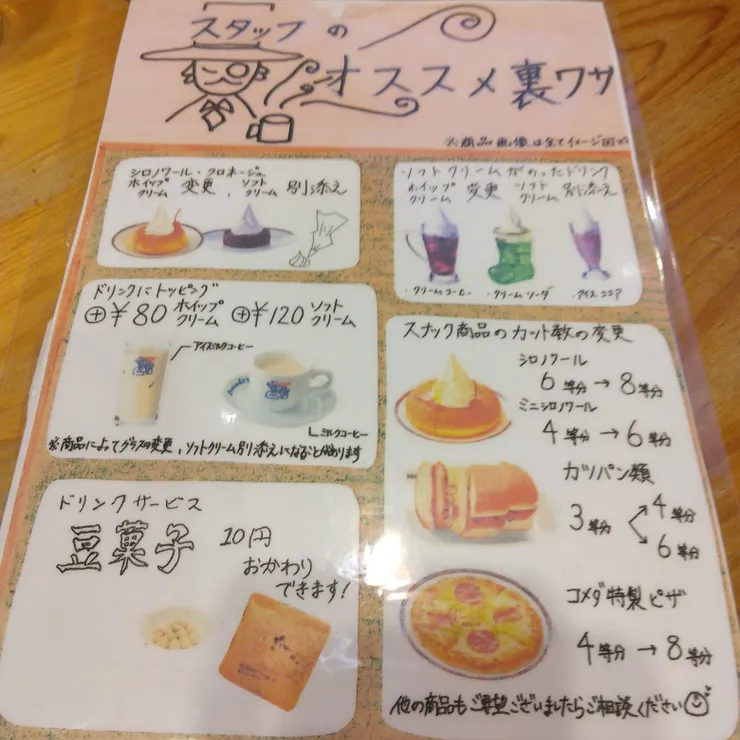 スタッフの
オススメ裏ワザ
※商品画像は全てイメージ図です
シロノワール・クロネージュ
ホイップクリーム 変更、ソフトクリーム 別添え
ソフトクリームがのったドリンク
ホイップクリーム 変更 ソフトクリーム 別添え
・クリームコーヒー ・クリームソーダ ・アイスココア
ドリンクにトッピング
⊕¥80 ホイップクリーム ⊕¥120 ソフトクリーム
アイスミルクコーヒー
ミルクコーヒー
※商品によってグラスの変更、ソフトクリーム別添えになることがあります
スナック商品のカット数の変更
シロノワール
6等分→8等分
ミニシロノワール
4等分→6等分
カツパン類
3等分
4等分
6等分
コメダ特製ピザ
4等分→8等分
他の商品もご希望ございましたらご相談ください
ドリンクサービス
豆菓子 10円
おかわり
できます!